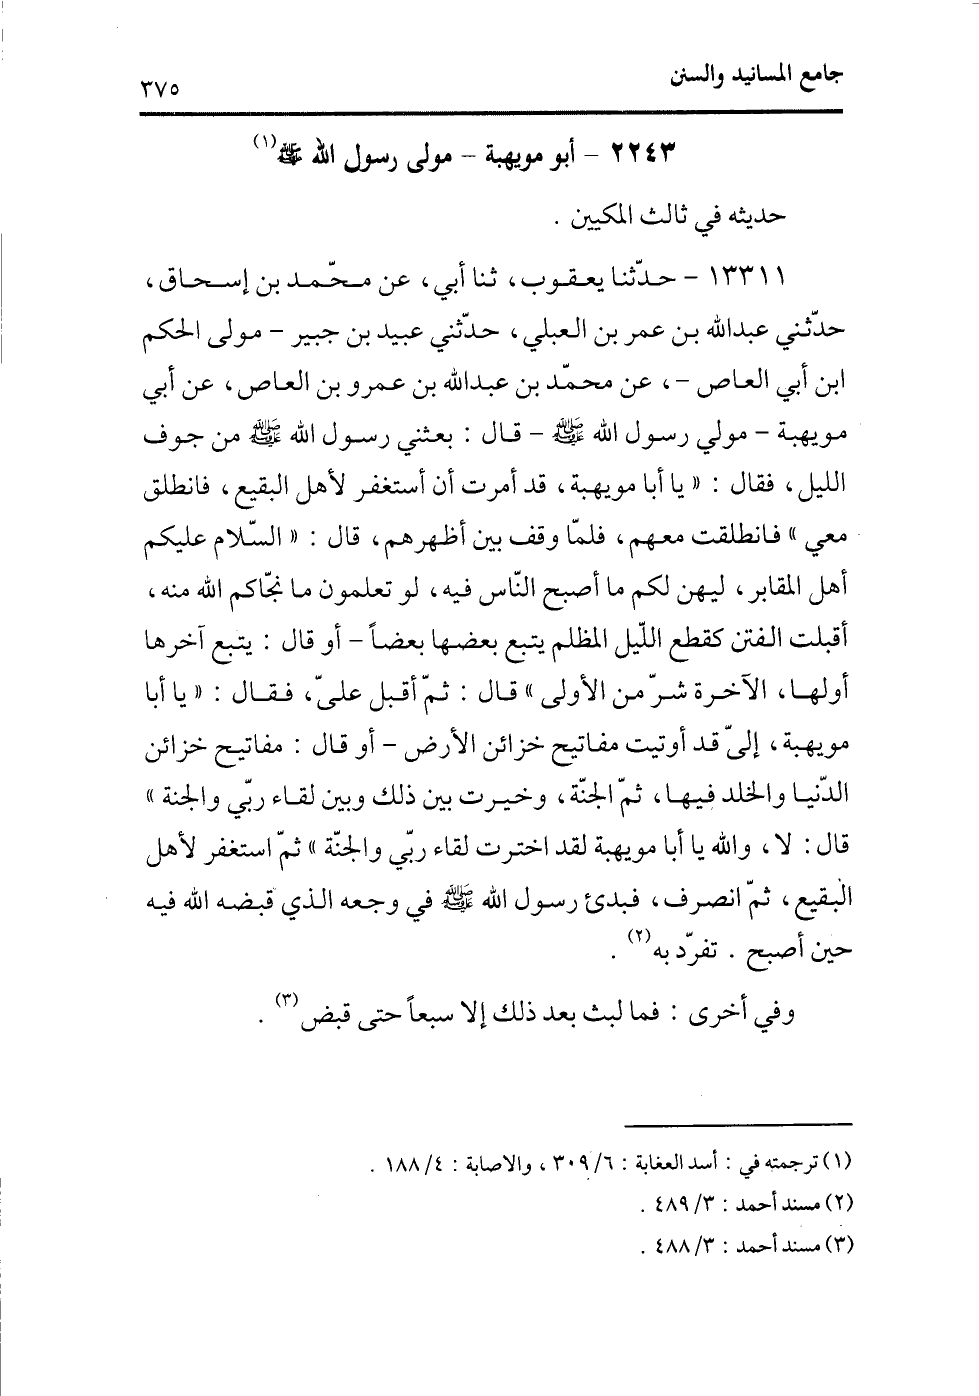 جامع المسانيد والسنن
٣٧٥
٢٢٤٣ - أبو مويهبة - مولى رسول الله ﷺ(١)
حديثه في ثالث المكيين .
١٣٣١١ - حدّثنا يعقوب، ثنا أبي، عن محّمد بن إسحاق،
حدّثني عبدالله بن عمر بن العبلي، حدّثني عبيد بن جبير - مولى الحكم
ابن أبي العاص -، عن محمّد بن عبدالله بن عمرو بن العاص، عن أبي
مويهبة - مولي رسول الله ﷺ - قال : بعثني رسول الله ﷺ من جوف
الليل، فقال : « يا أبا مويهبة، قد أمرت أن أستغفر لأهل البقيع، فانطلق
معي » فانطلقت معهم، فلمّا وقف بين أظهرهم، قال : « السّلام عليكم
أهل المقابر، ليهن لكم ما أصبح النّاس فيه، لو تعلمون ما نجّاكم الله منه،
أقبلت الفتن كقطع اللّيل المظلم يتبع بعضها بعضاً - أو قال : يتبع آخرها
أولها، الآخرة شرّ من الأولى » قال : ثمّ أقبل عليّ، فقال : « يا أبا
مويهبة، إليّ قد أوتيت مفاتيح خزائن الأرض - أو قال : مفاتيح خزائن
الدّنيا والخلد فيها، ثمّ الجنّة، وخيرت بين ذلك وبين لقاء ربّي والجنة »
قال : لا، والله يا أبا مويهبة لقد اخترت لقاء ربّي والجنّة » ثمّ استغفر لأهل
البقيع، ثمّ انصرف، فبدئ رسول الله ﷺ في وجعه الذي قبضه الله فيه
حين أصبح . تفرّد به(٢) .
وفي أخرى : فما لبث بعد ذلك إلا سبعاً حتى قبض(٣) .
(١) ترجمته في : أسد الغابة : ٣٠٩/٦، والاصابة : ١٨٨/٤ .
(٢) مسند أحمد : ٤٨٩/٣ .
(٣) مسند أحمد : ٤٨٨/٣ .